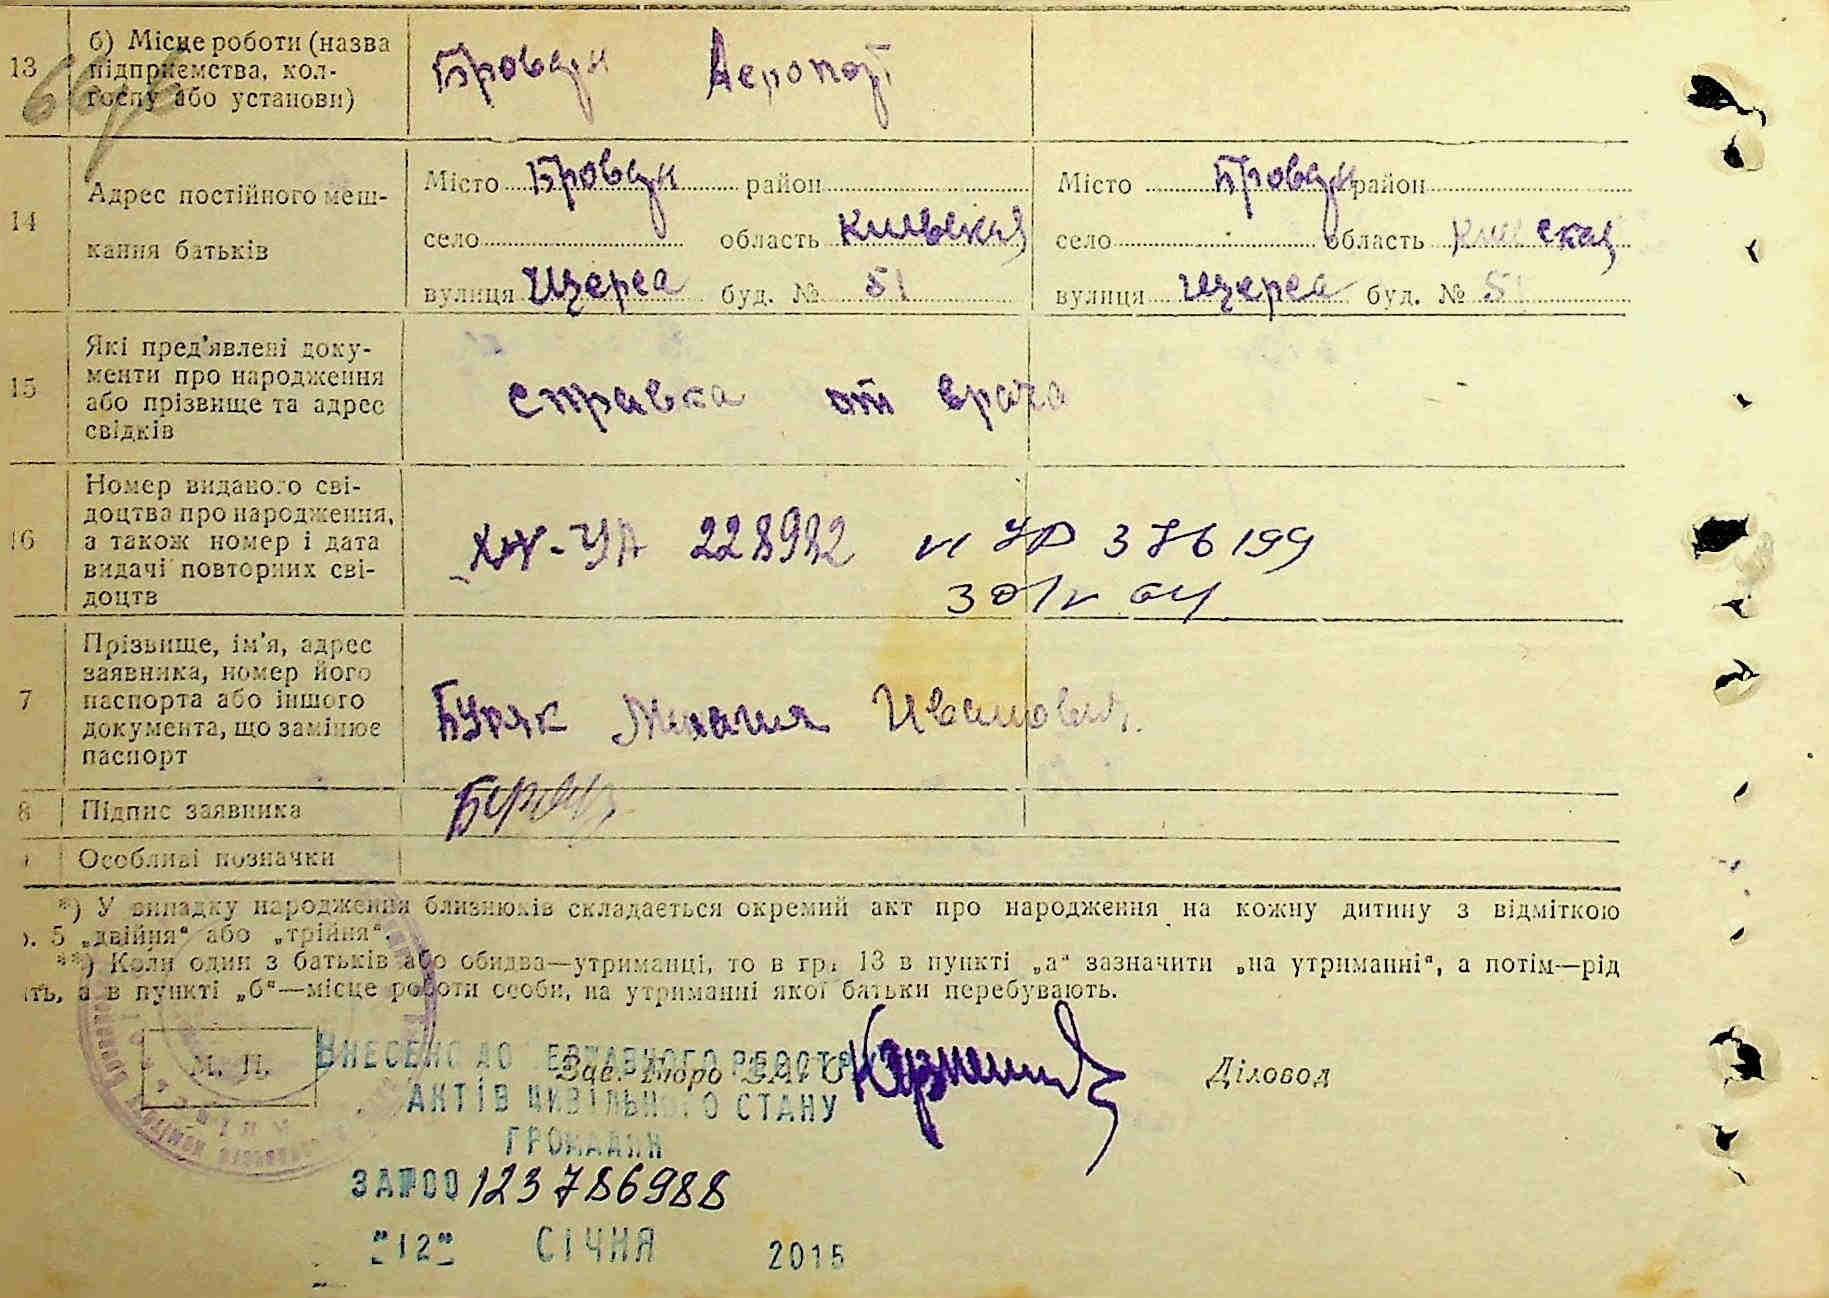 13
б) Місце роботи (назва
підприємства, кол-
госпу або установи)
Аеропорт
14
Адрес постійного меш-
кання батьків
Місто район
село область Киевская
вулиця Щерса буд. № 51
Місто район
село область
вулиця Щерса буд. № 51
15
Які пред'явлені доку-
менти про народження
або прізвище та адрес
свідків
справка от врача
16
Номер виданого сві-
доцтва про народження,
а також номер і дата
видачі повторних сві-
доцтв
228982 и УР 376199
7
Прізвище, ім'я, адрес
заявника, номер його
паспорта або іншого
документа, що замінює
паспорт
Буряк Михаил Иванович.
8
Підпис заявника
Особливі позначки
*) У випадку народження близнюків складається окремий акт про народження на кожну дитину з відміткою
. 5 „двійня“ або „трійня“.
**) Коли один з батьків або обидва—утриманці, то в гр. 13 в пункті „а“ зазначити „на утриманні“, а потім—рід
ть, а в пункті „б“—місце роботи особи, на утриманні якої батьки перебувають.
М. П.
Зав. Бюро ЗАГС
Діловод
ВНЕСЕНО ДО ДЕРЖАВНОГО РЕЄСТРУ
АКТІВ ЦИВІЛЬНОГО СТАНУ
ГРОМАДЯН
ЗА №00123786988
"12" СІЧНЯ 2015